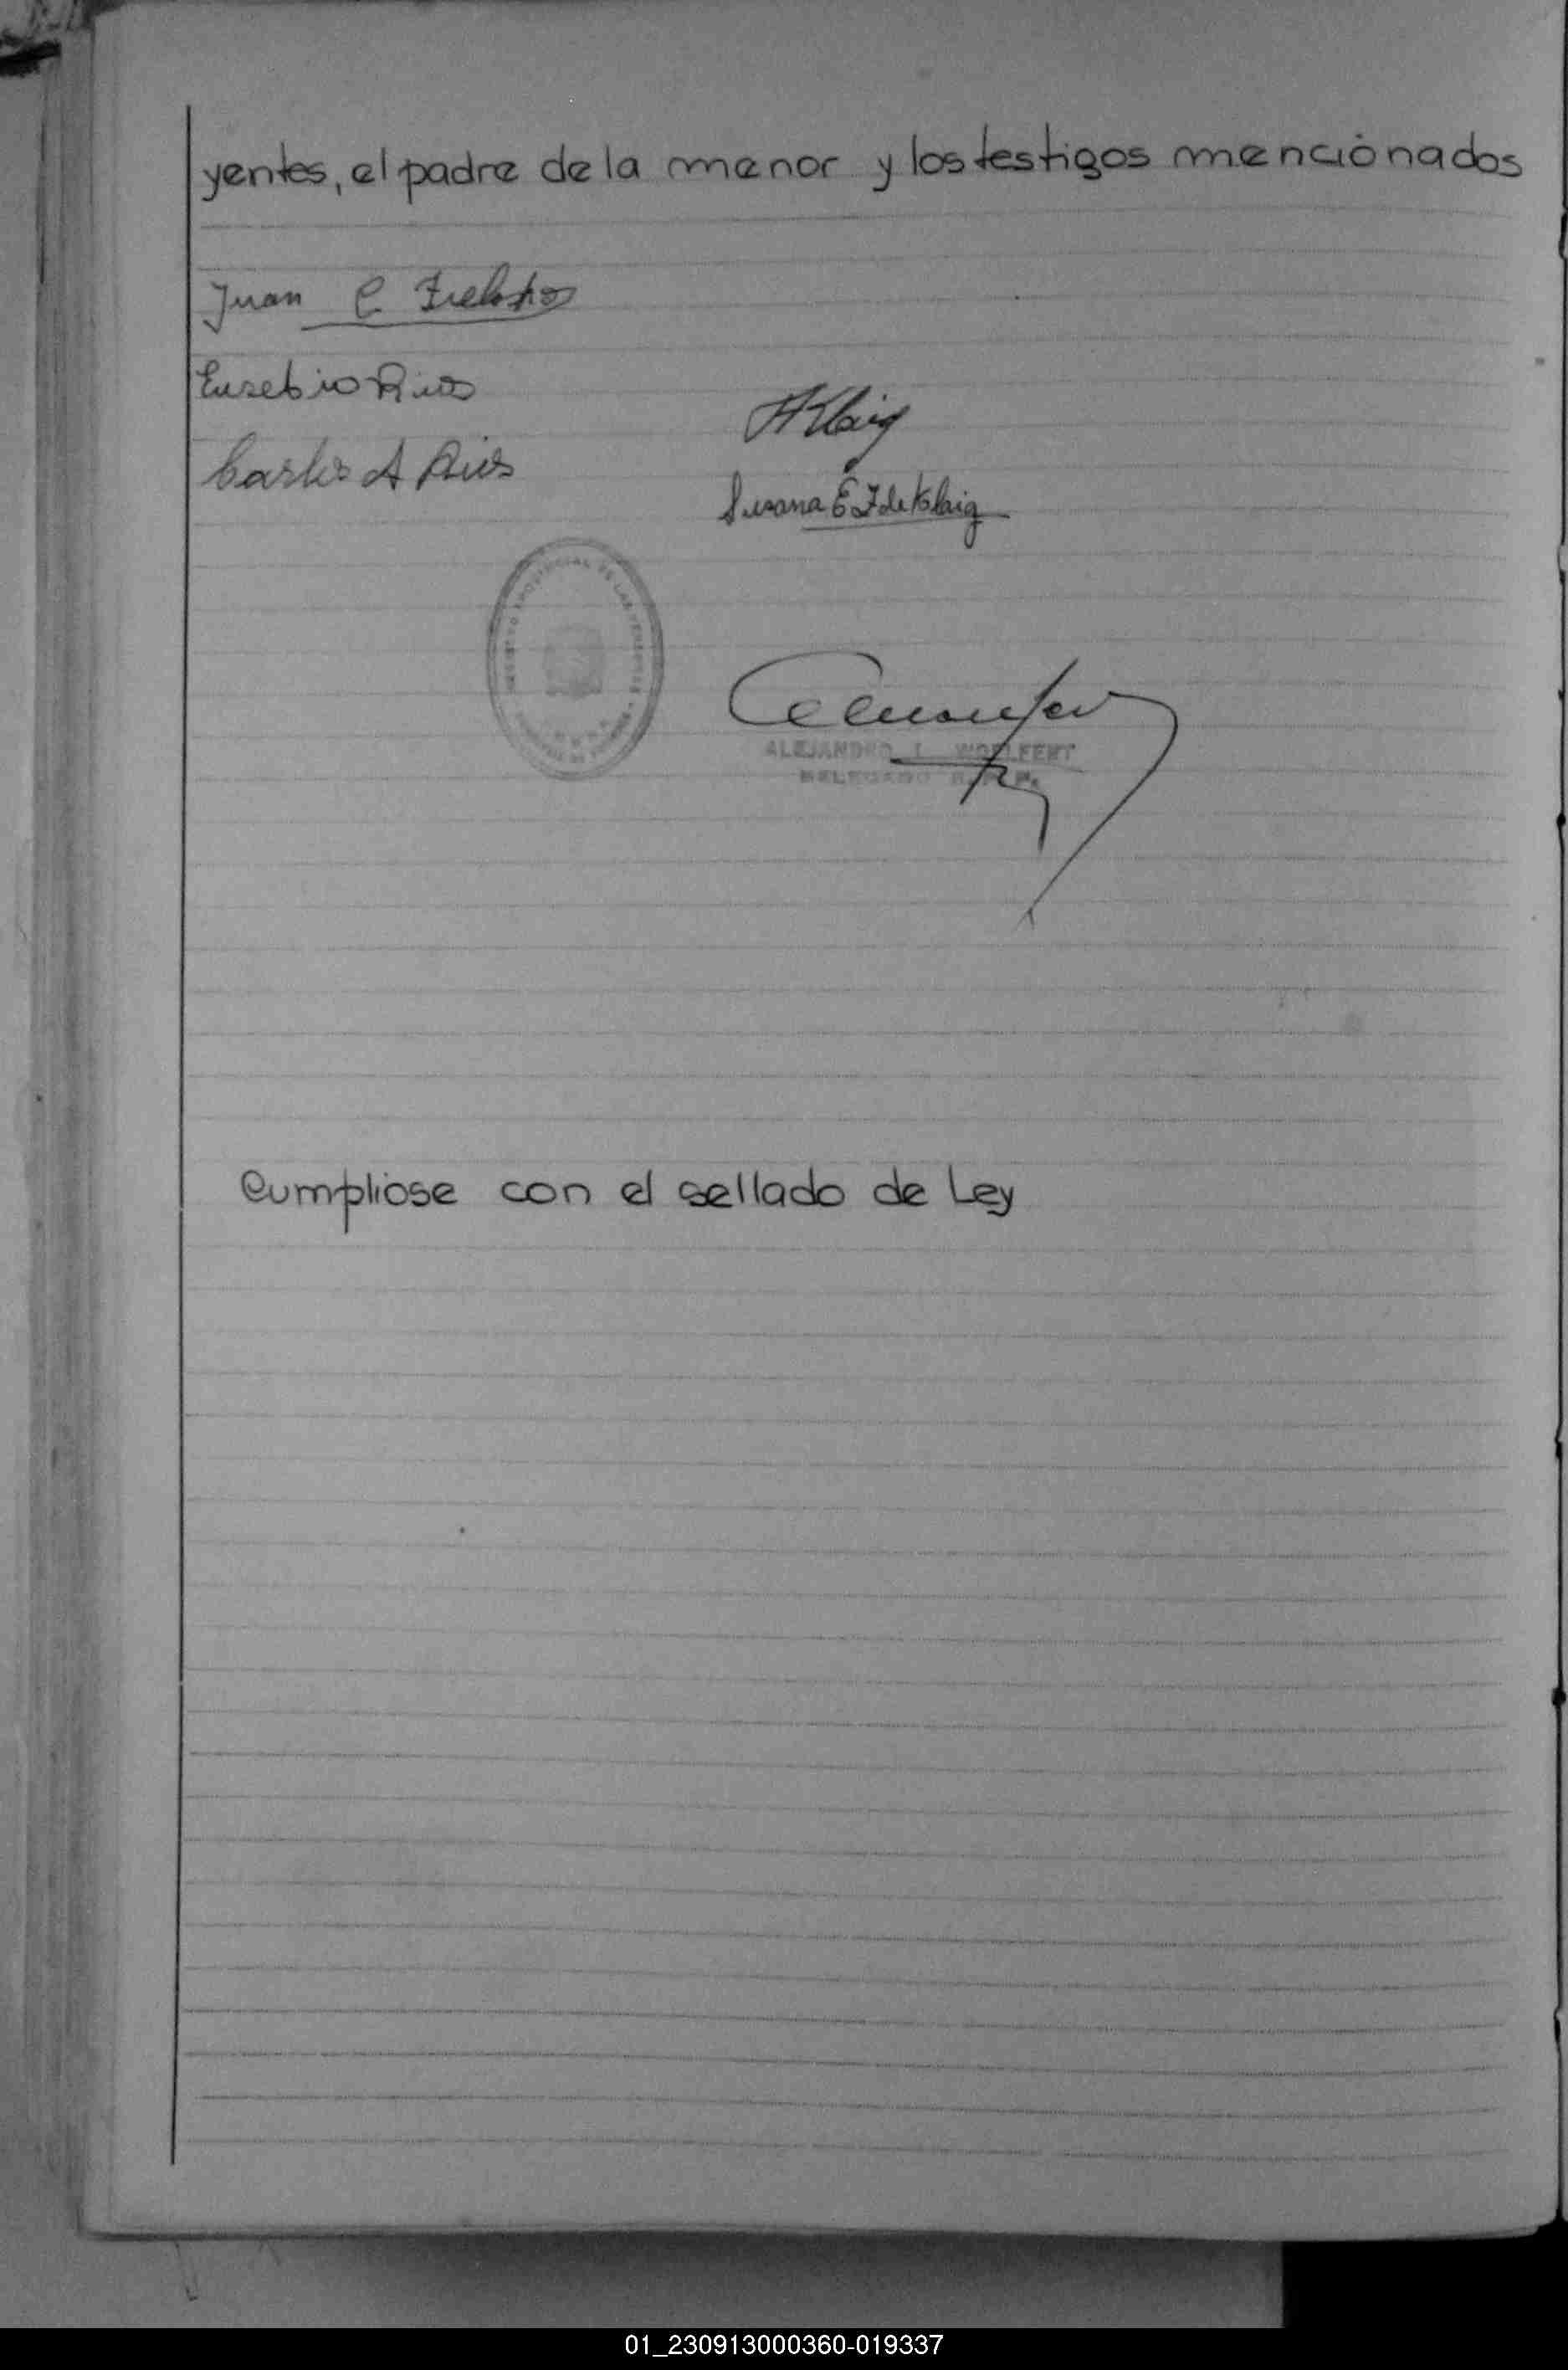 yentes, el padre de la menor y los testigos mencionados
Juan C
Eusebio Rios
Carlos A Rios
Klaig
Susana E F de Klaig
ALEJANDRO L. WOELFERT
DELEGADO R.P.P.
Cumpliose con el sellado de Ley
01_230913000360-019337